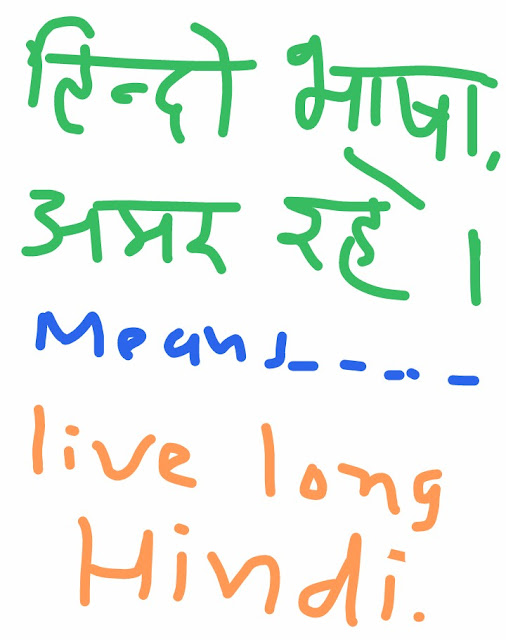 हिन्दी भाषा,
अमर रहे।
Means-----
live long
Hindi.